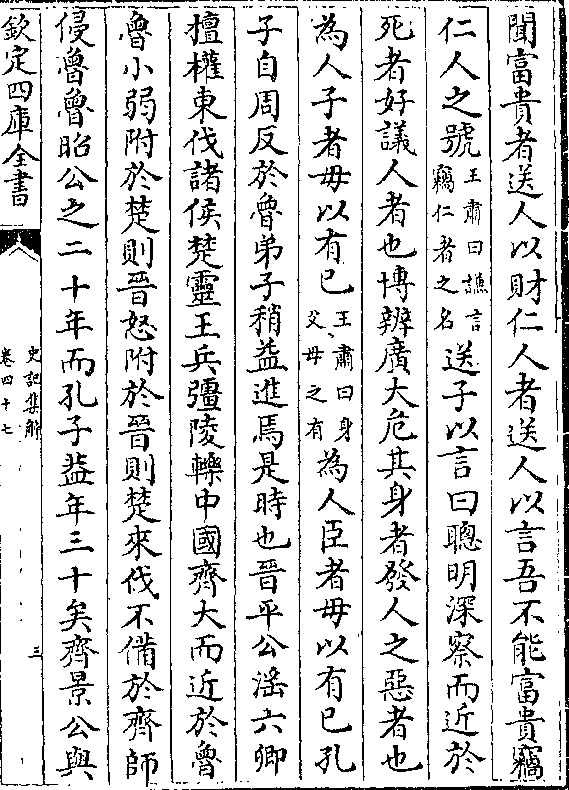 聞富貴者送人以財仁人者送人以言吾不能富貴竊
仁人之號王肅曰謙言竊仁者之名送子以言曰聰明深察而近於
死者好議人者也博辨廣大危其身者發人之惡者也
為人子者毋以有已王肅曰身父母之有為人臣者毋以有已孔
子自周反於魯弟子稍益進焉是時也晉平公淫六卿
擅權東伐諸侯楚靈王兵彊陵轢中國齊大而近於魯
魯小弱附於楚則晉怒附於晉則楚來伐不備於齊齊師
侵魯魯昭公之二十年而孔子葢年三十矣齊景公與
欽定四庫全書
史記集解
卷四十七
三